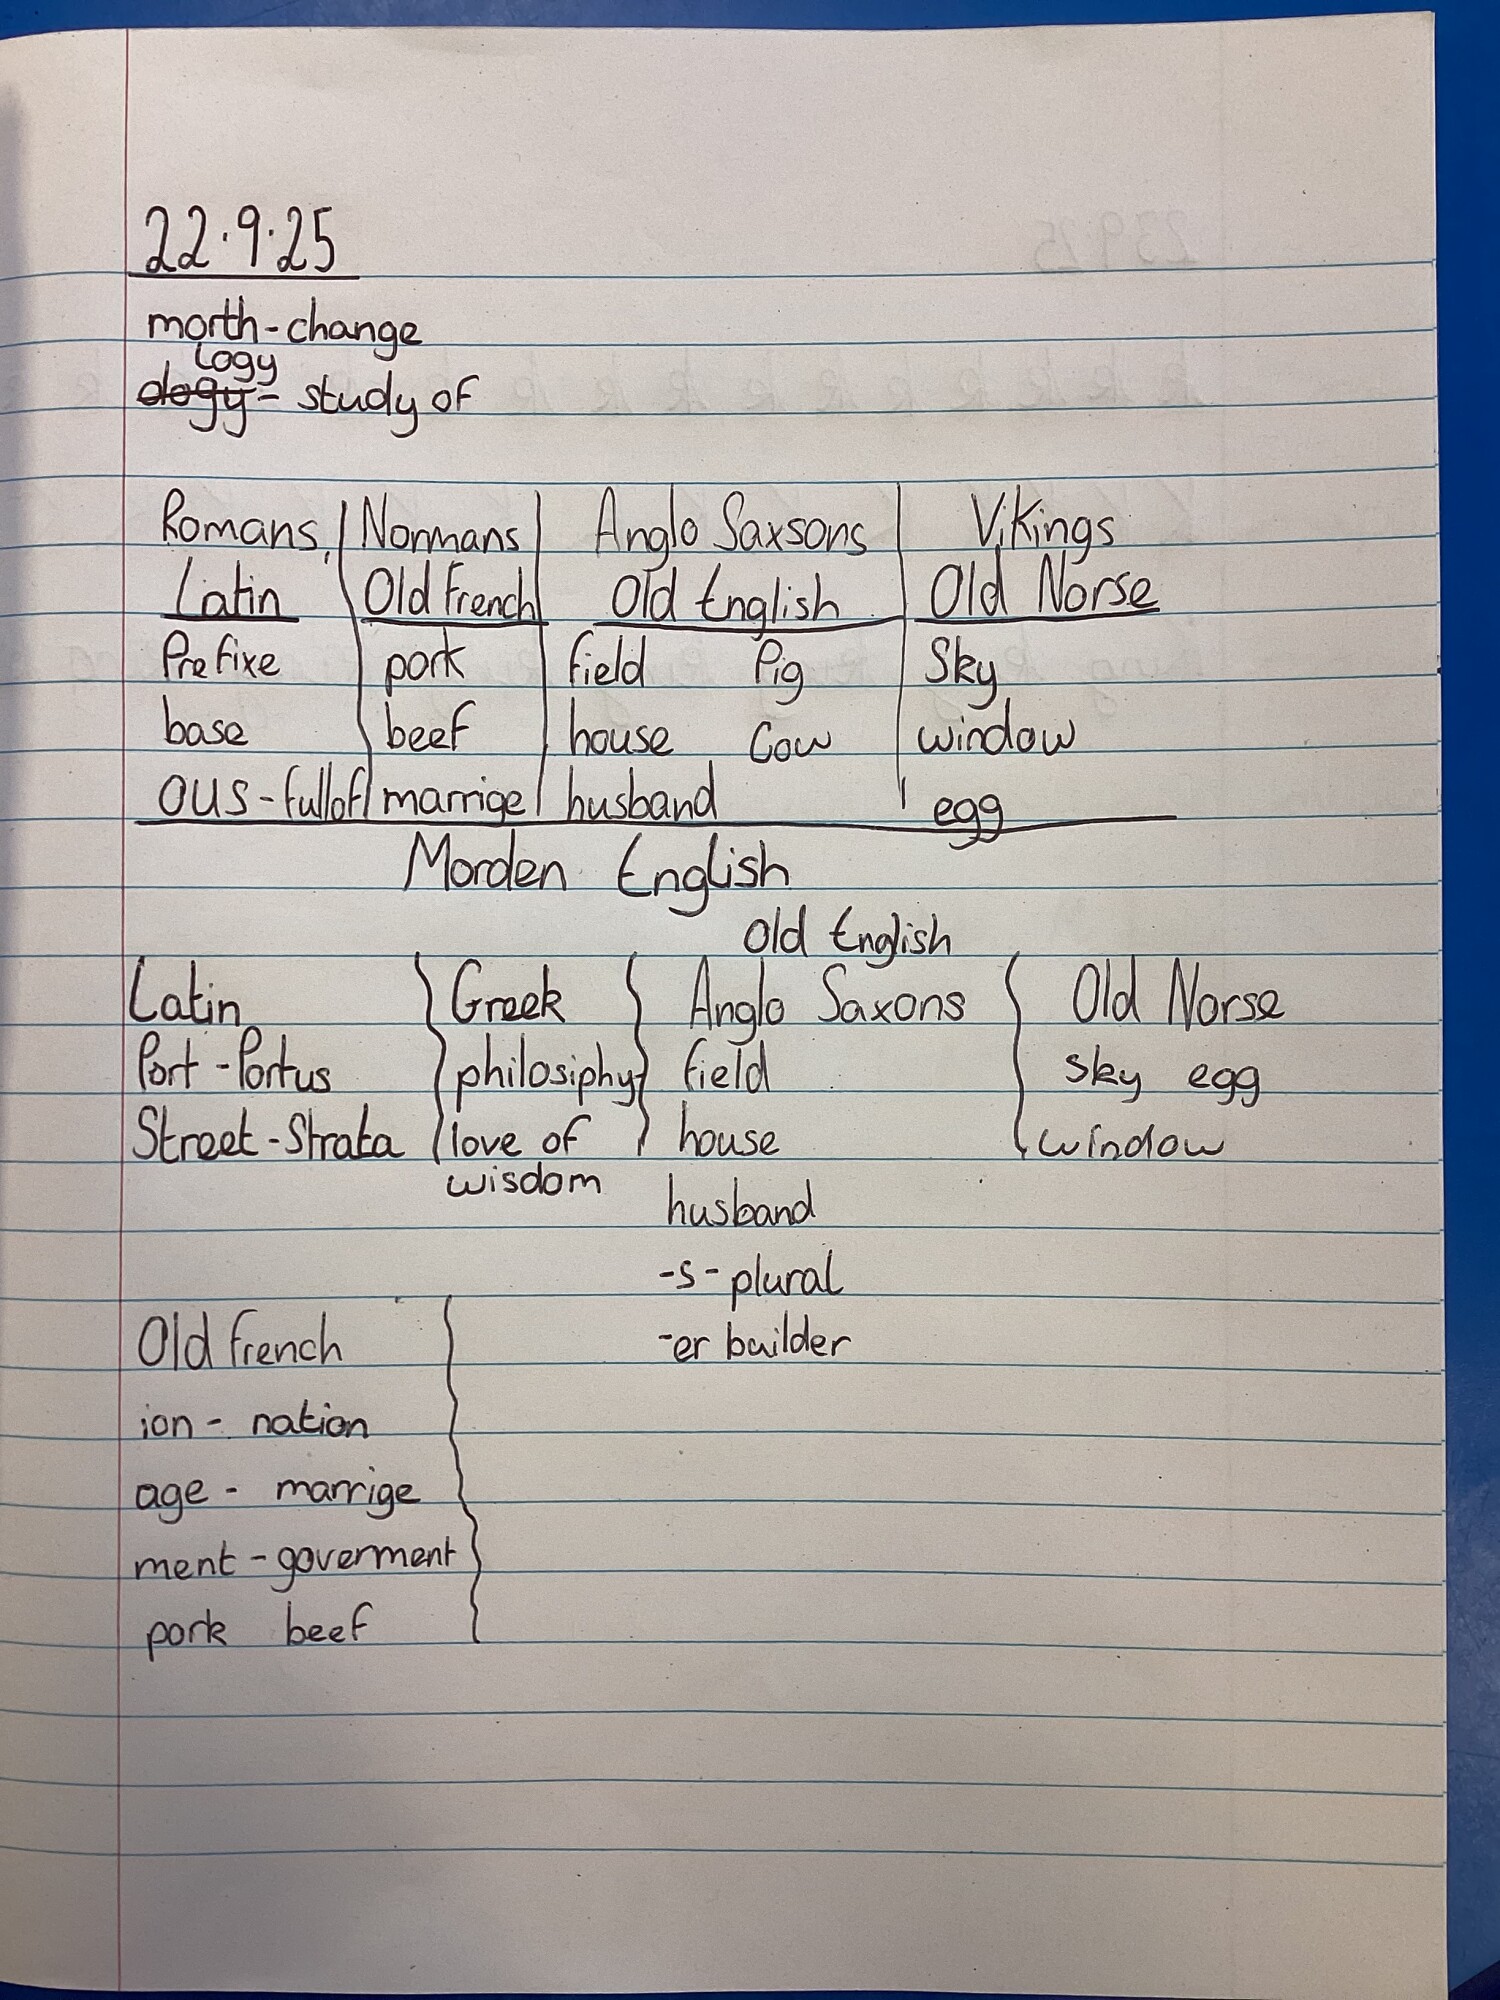 22.9.25
morth - change
logy
ology - study of
Romans Normans Anglo Saxsons Vikings
Latin Old French Old English Old Norse
Prefixe pork field Pig Sky
base beef house Cow window
ous - full of marrige husband egg
Morden English
Old English
Latin Greek Anglo Saxons Old Norse
Port - Portus philosiphy field sky egg
Street - Strata love of house window
wisdom
husband
-s - plural
Old French -er builder
ion - nation
age - marrige
ment - goverment
pork beef